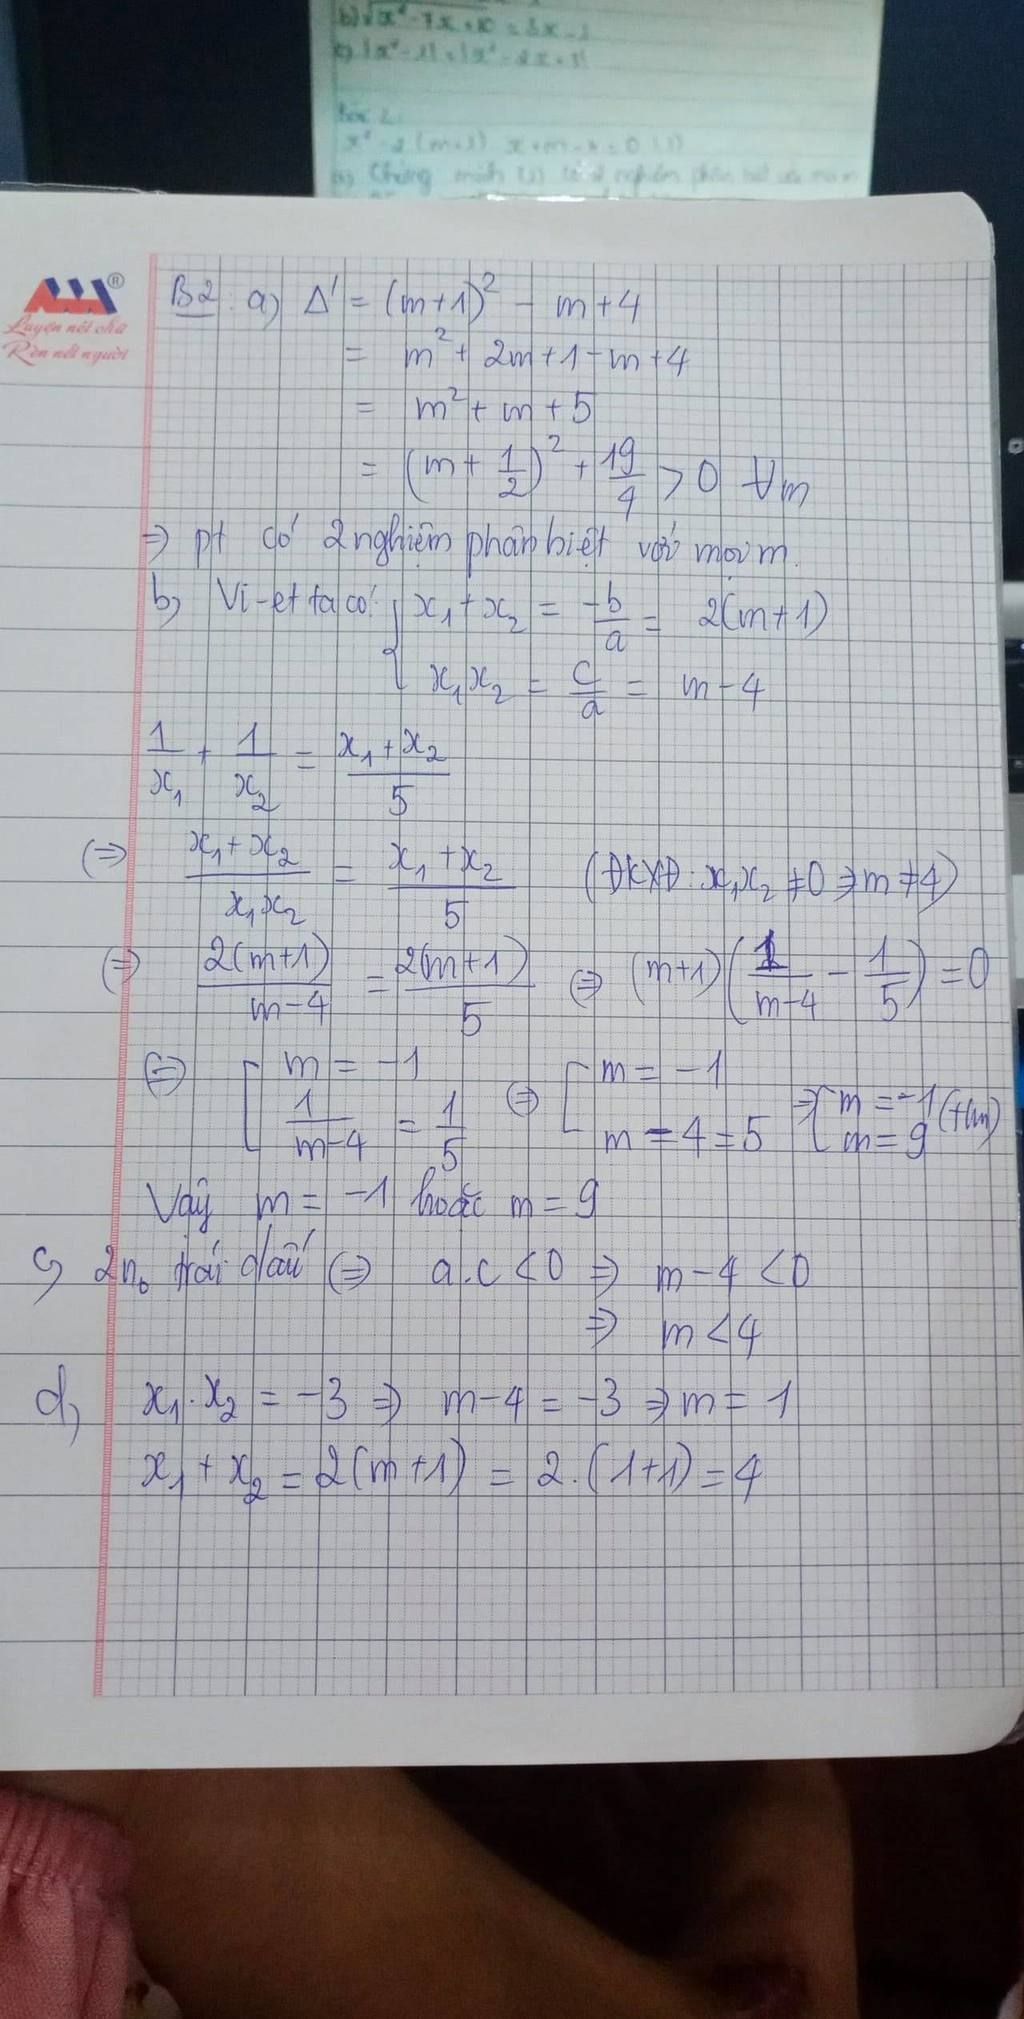 b) √x² - 7x + 10 = 3x - 1
Bài 2:
a) Chứng minh (1) có 2 nghiệm phân biệt với mọi m
Luyện nét chữ
Rèn nết người
B2 a) Δ' = (m+1)² - m+4
= m² + 2m+1-m+4
= m² + m + 5
= (m + 1/2)² + 19/4 > 0 ∀m
⇒ pt có 2 nghiệm phân biệt với mọi m.
b, Vi-et ta có { x₁ + x₂ = -b/a = 2(m+1)
x₁x₂ = c/a = m-4
1/x₁ + 1/x₂ = (x₁+x₂)/5
(⇒) (x₁+x₂)/(x₁x₂) = (x₁+x₂)/5 (ĐKXĐ: x₁x₂ ≠0 ⇒ m≠4)
(⇒) 2(m+1)/(m-4) = 2(m+1)/5 ⇔ (m+1)(1/(m-4) - 1/5) = 0
⇔ [ m = -1
1/(m-4) = 1/5 ⇔ [ m = -1
m-4=5 ⇒ [ m = -1
m = 9 (tm)
Vậy m = -1 hoặc m = 9
c, 2n₀ trái dấu (⇒) a.c <0 ⇒ m-4 <0
⇒ m <4
d, x₁.x₂ = -3 ⇒ m-4 = -3 ⇒ m = 1
x₁ + x₂ = 2(m+1) = 2.(1+1) = 4